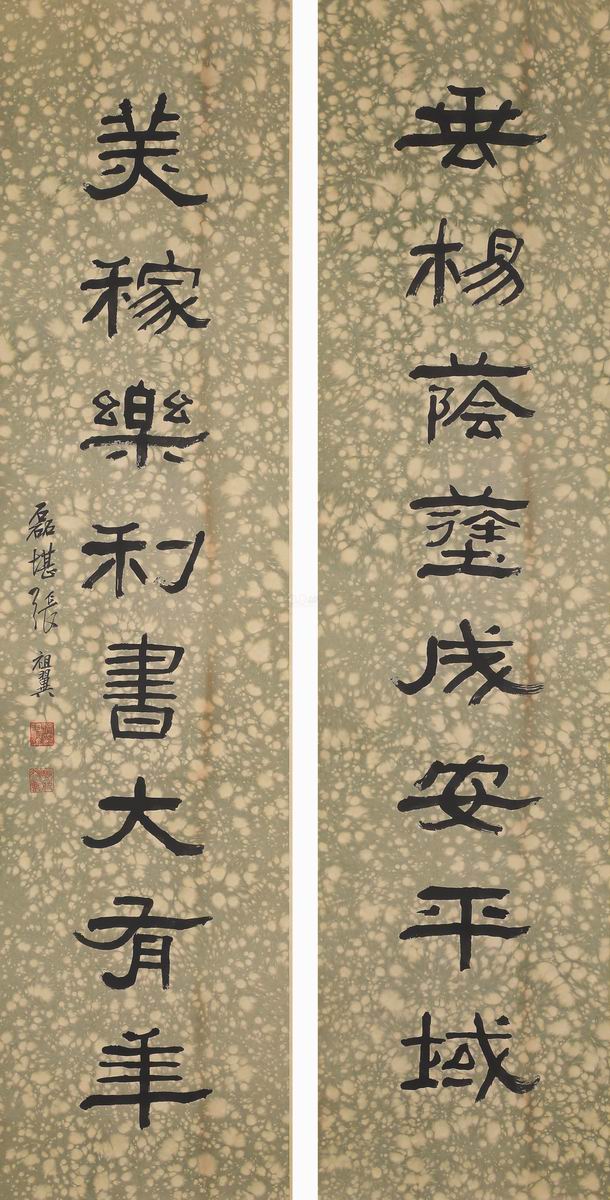 垂楊蔭蓬成安平域
美稼樂利書大有年
磊堪張祖翼